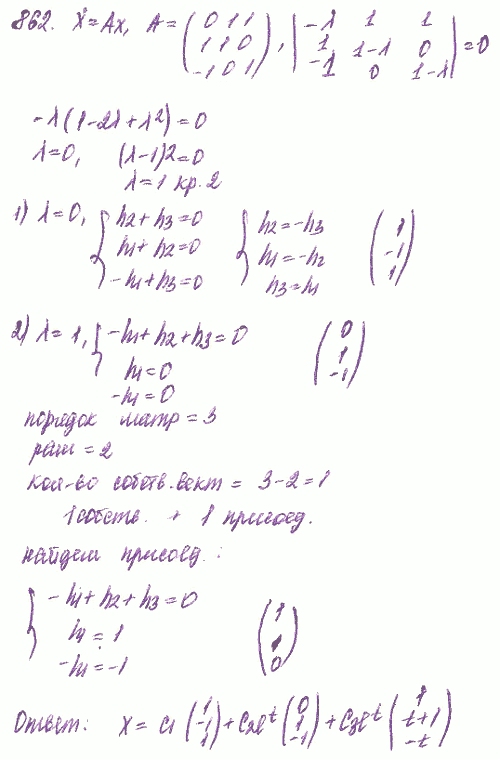 862. Ẋ=Ax, A=(0 1 1; 1 1 0; -1 0 1), |-λ 1 1; 1 1-λ 0; -1 0 1-λ|=0
-λ(1-2λ+λ²)=0
λ=0, (λ-1)²=0
λ=1 кр.2
1) λ=0, { h₂+h₃=0 { h₂=-h₃ (1
h₁+h₂=0 h₁=-h₂ -1
-h₁+h₃=0 h₃=h₁ 1)
2) λ=1, { -h₁+h₂+h₃=0 (0
h₁=0 1
-h₁=0 -1)
порядок матр=3
ранг=2
кол-во собств.вект= 3-2=1
1 собств. + 1 присоед.
найдем присоед.:
{ -h₁+h₂+h₃=0 (1
h₁=1 1
-h₁=-1 0)
Ответ: X=C₁(1; -1; 1)+C₂e^t(0; 1; -1)+C₃e^t(1; t+1; -t)